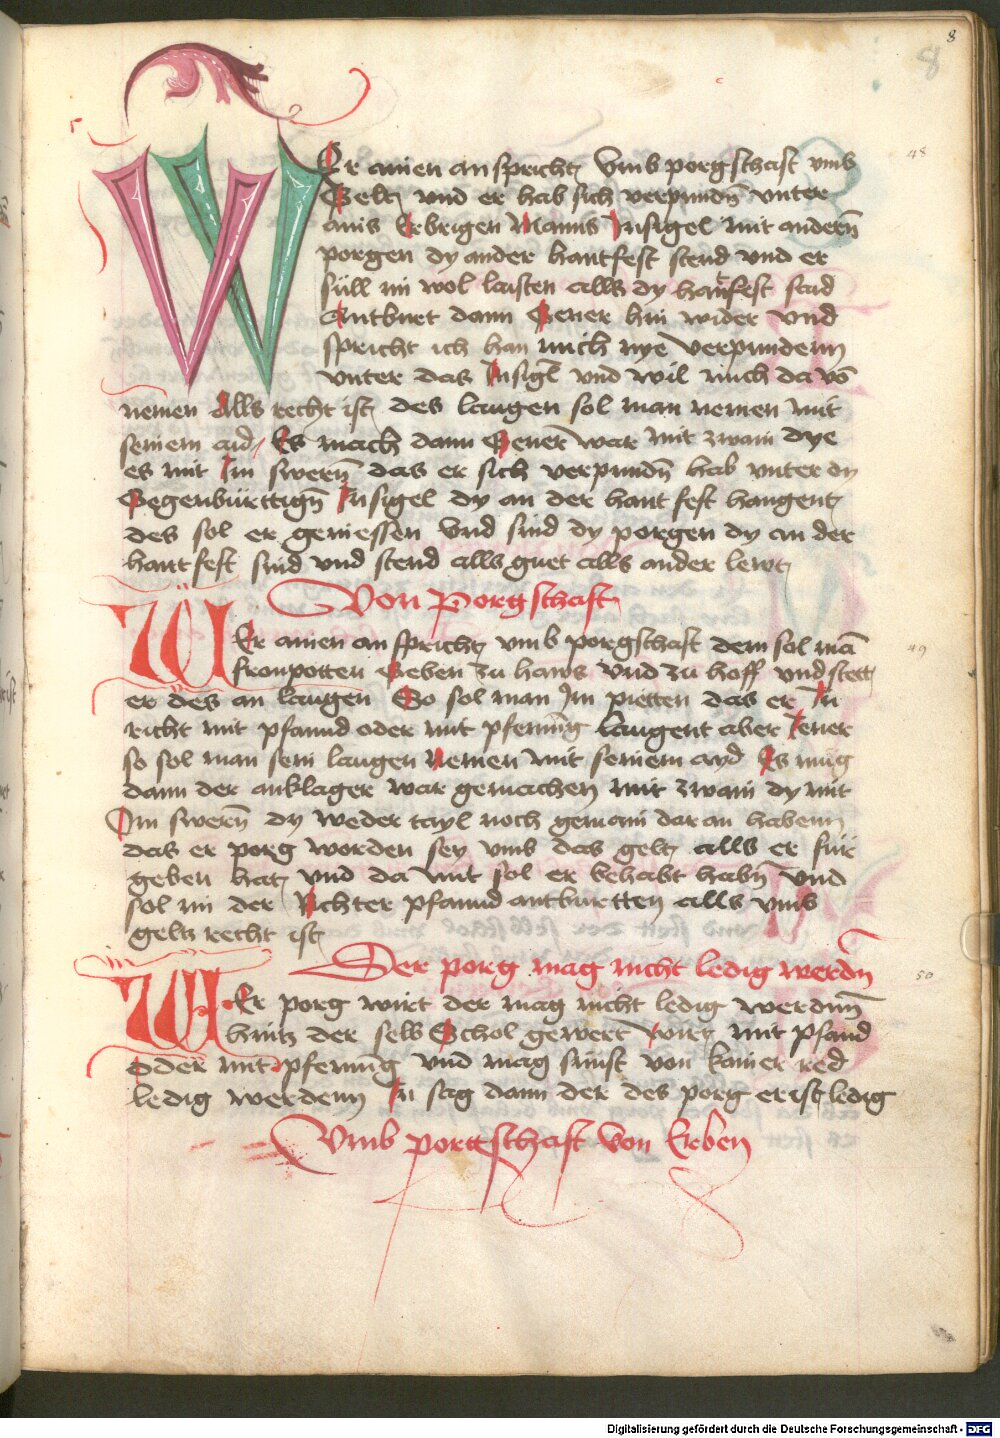 8
8
WEr ainen anspricht Vmb porgschaft vmb
Gelt vnd er hab sich verpundn̄ vnter
ains Erbrigen Manns Insigel mit anderñ
porgen dy an der hantfest stend vnd er
süll im wol laisten alls dy hantfest said
Antburt dann Gener hin wider Vnd
spricht ich han mich nye verpundenn
vnter das Insigl vnd wil mich da vō
nemen Alls recht ist des laugen sol man nemen mit
seinem aid Es mach dann Gener war mit zwain dye
es mit Im swern̄ das er sich verpundn̄ hab vnter dy
Gegenbürttign̄ Insigel dy an der hant fest hangent
des sol er geniessen Vnd sind dy porgen dy an der
hantfest sind vnd stend alls guet alls ander lewt
Von Porgschaft
48
WEr ainen anspricht vmb porgschaft dem sol mā
fronpotten Geben zu haws vnd zu hoff vnd stett
er des an laugen So sol man Im pietten das er In
richt mit pfannd oder mit pfenning laugent aber Jener
so sol man sein laugen Nemen mit seinem ayd Es müg
dann der anklager war gemachen mit zwain dy mit
Im swern̄ dy weder tayl noch gemain dar an habenn
das er porg worden sey vmb das gelt alls er für
geben hat vnd da mit sol er behabt habn̄ Vnd
sol im der Richter pfannd antburtten alls vmb
gelt recht ist
49
Der porg mag nicht ledig werdn̄
50
WEr porg wirt der mag nicht ledig werdnn̄
hintz der selb Gschol gewert wirt mit pfand
Oder mit pfenning vnd mag sunst von kainer red
ledig werdenn In sag dann der des porg er ist ledig
Vmb portgschaft von Erben
Digitalisierung gefördert durch die Deutsche Forschungsgemeinschaft - DFG